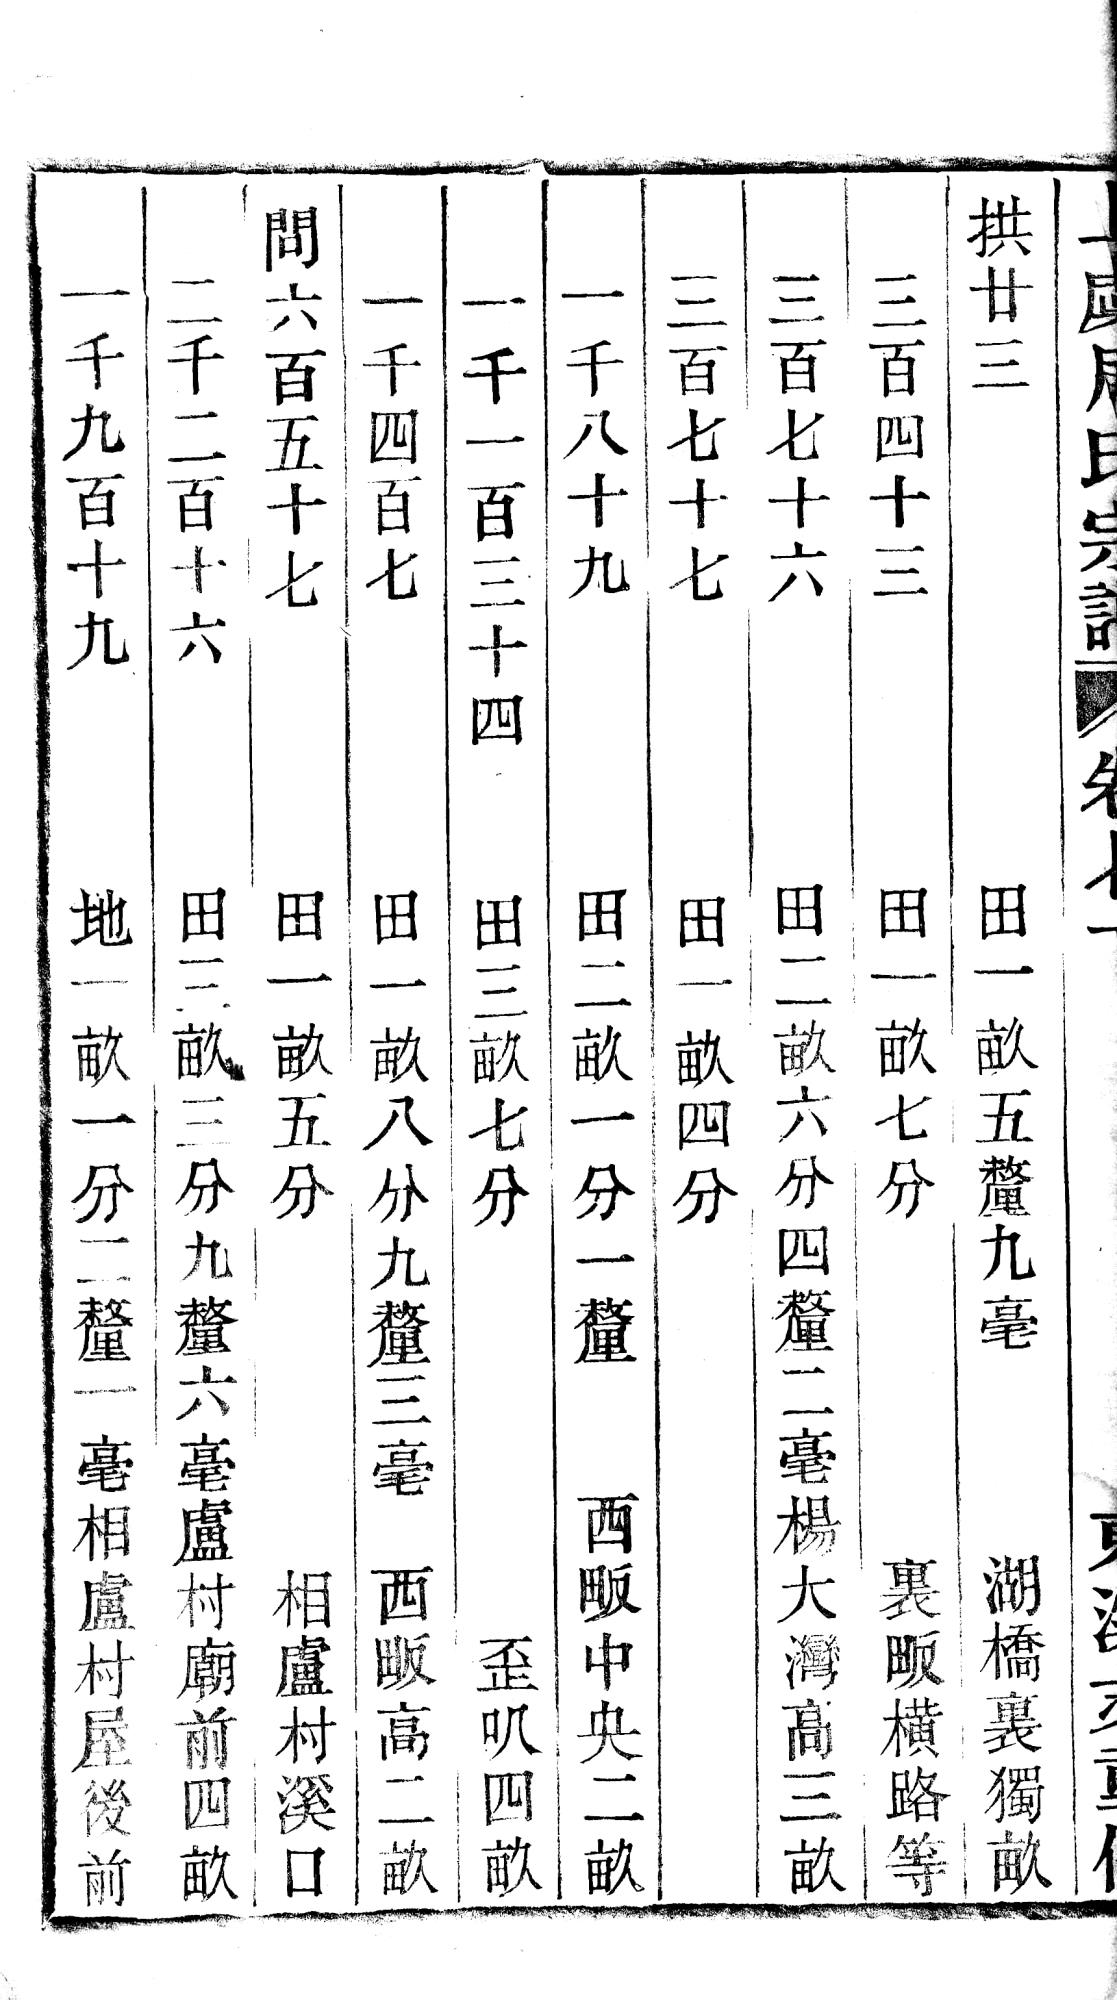 拱廿三 田一畝五釐九毫 湖橋裏獨畝
三百四十三 田一畝七分 裏畈橫路等
三百七十六 田二畝六分四釐二毫楊大灣高三畝
三百七十七 田一畝四分
一千八十九 田二畝一分一釐 西畈中央二畝
一千一百三十四 田三畝七分 歪叺四畝
一千四百七 田一畝八分九釐三毫 西畈高二畝
問六百五十七 田一畝五分 相盧村溪口
二千二百十六 田三畝三分九釐六毫盧村廟前四畝
一千九百十九 地一畝一分二釐一毫相盧村屋後前